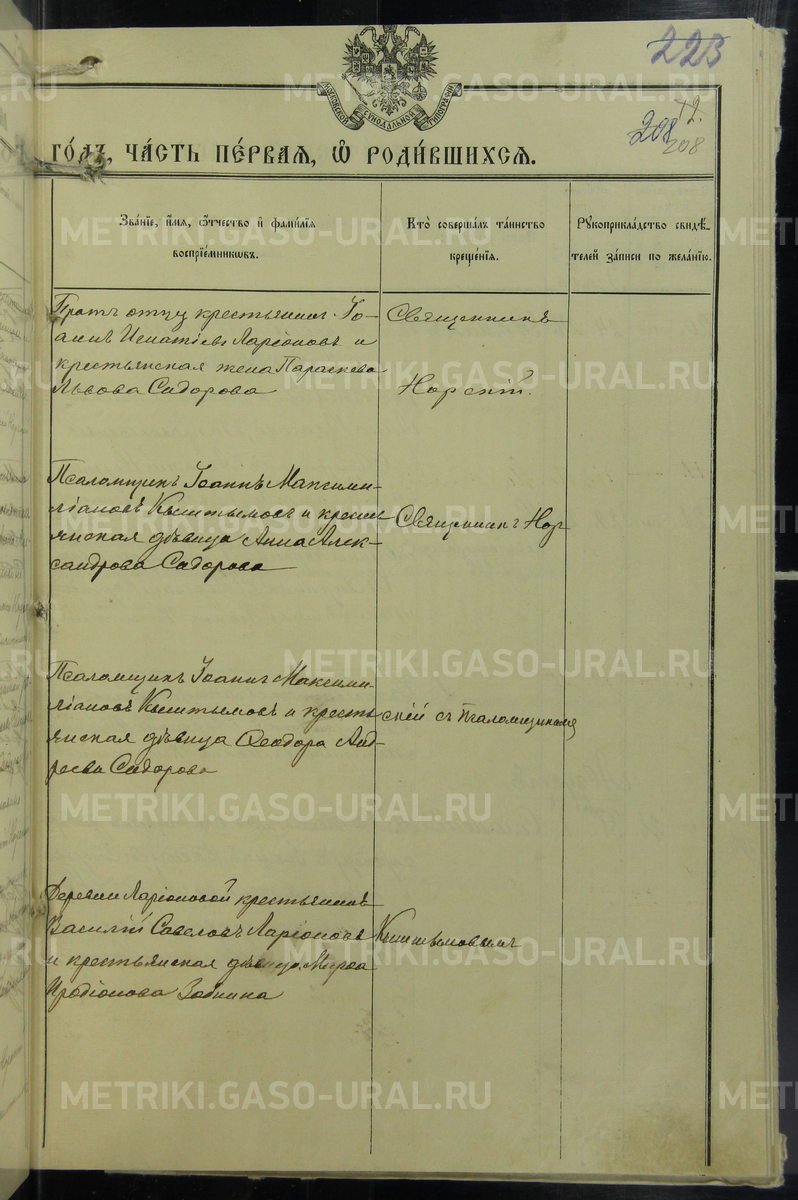 223
12.
208
208
МОСКОВСКОЙ СѴНОДАЛЬНОЙ ТИПОГРАФІИ
го́дъ, ча́сть пе́рваѧ, ѡ҆ роди́вшихсѧ.
Зва́нїе, и҆́мѧ, ѻ҆́тчество и҆ фами́лїѧ
воспрїе́мникѡвъ.
Кто̀ соверша́лъ та́инство
креще́нїѧ.
Рꙋкоприкла́дство свидѣ́-
телей за́писи по жела́нїю.
Братъ отцу крестьянинъ Іо-
аннъ Игнатіевъ Ларіоновъ и
крестьянская жена Параскева
Львова Сидорова
Священникъ
Норскій.
Псаломщикъ Іоаннъ Максими-
ліановъ Кыштымовъ и кресть
янская дѣвица Анна Алек-
сандрова Сидорова
Священникъ Нор
Псаломщикъ Іоаннъ Максими-
ліановъ Кыштымовъ и кресть
янская дѣвица Ѳеодора Анд-
реева Сидорова
скій съ псаломщикомъ
Деревни Ларіоновой крестьянинъ
Василій Савеловъ Ларіоновъ
и крестьянская дѣвица Марѳа
Иродіонова Зобнина
Кыштымовымъ
METRIKI.GASO-URAL.RU